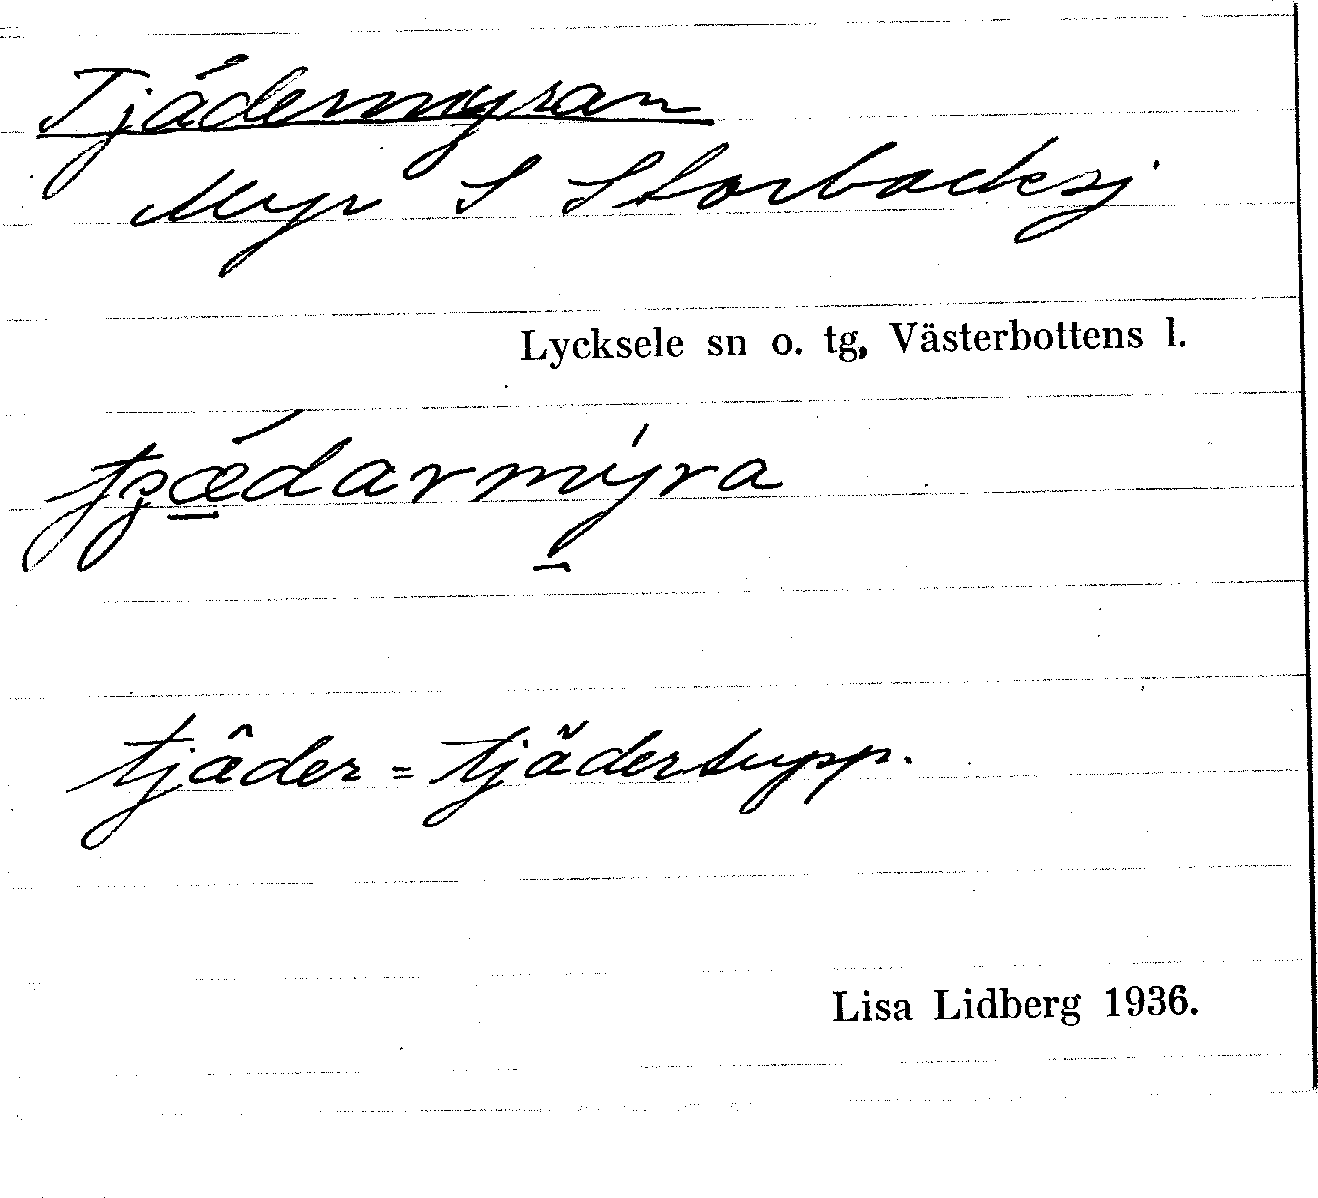 Tjädermyran
Myr S Storbacksj
Lycksele sn o. tg, Västerbottens l.
tʒǽdarmýra
tjäder = tjädertupp.
Lisa Lidberg 1936.